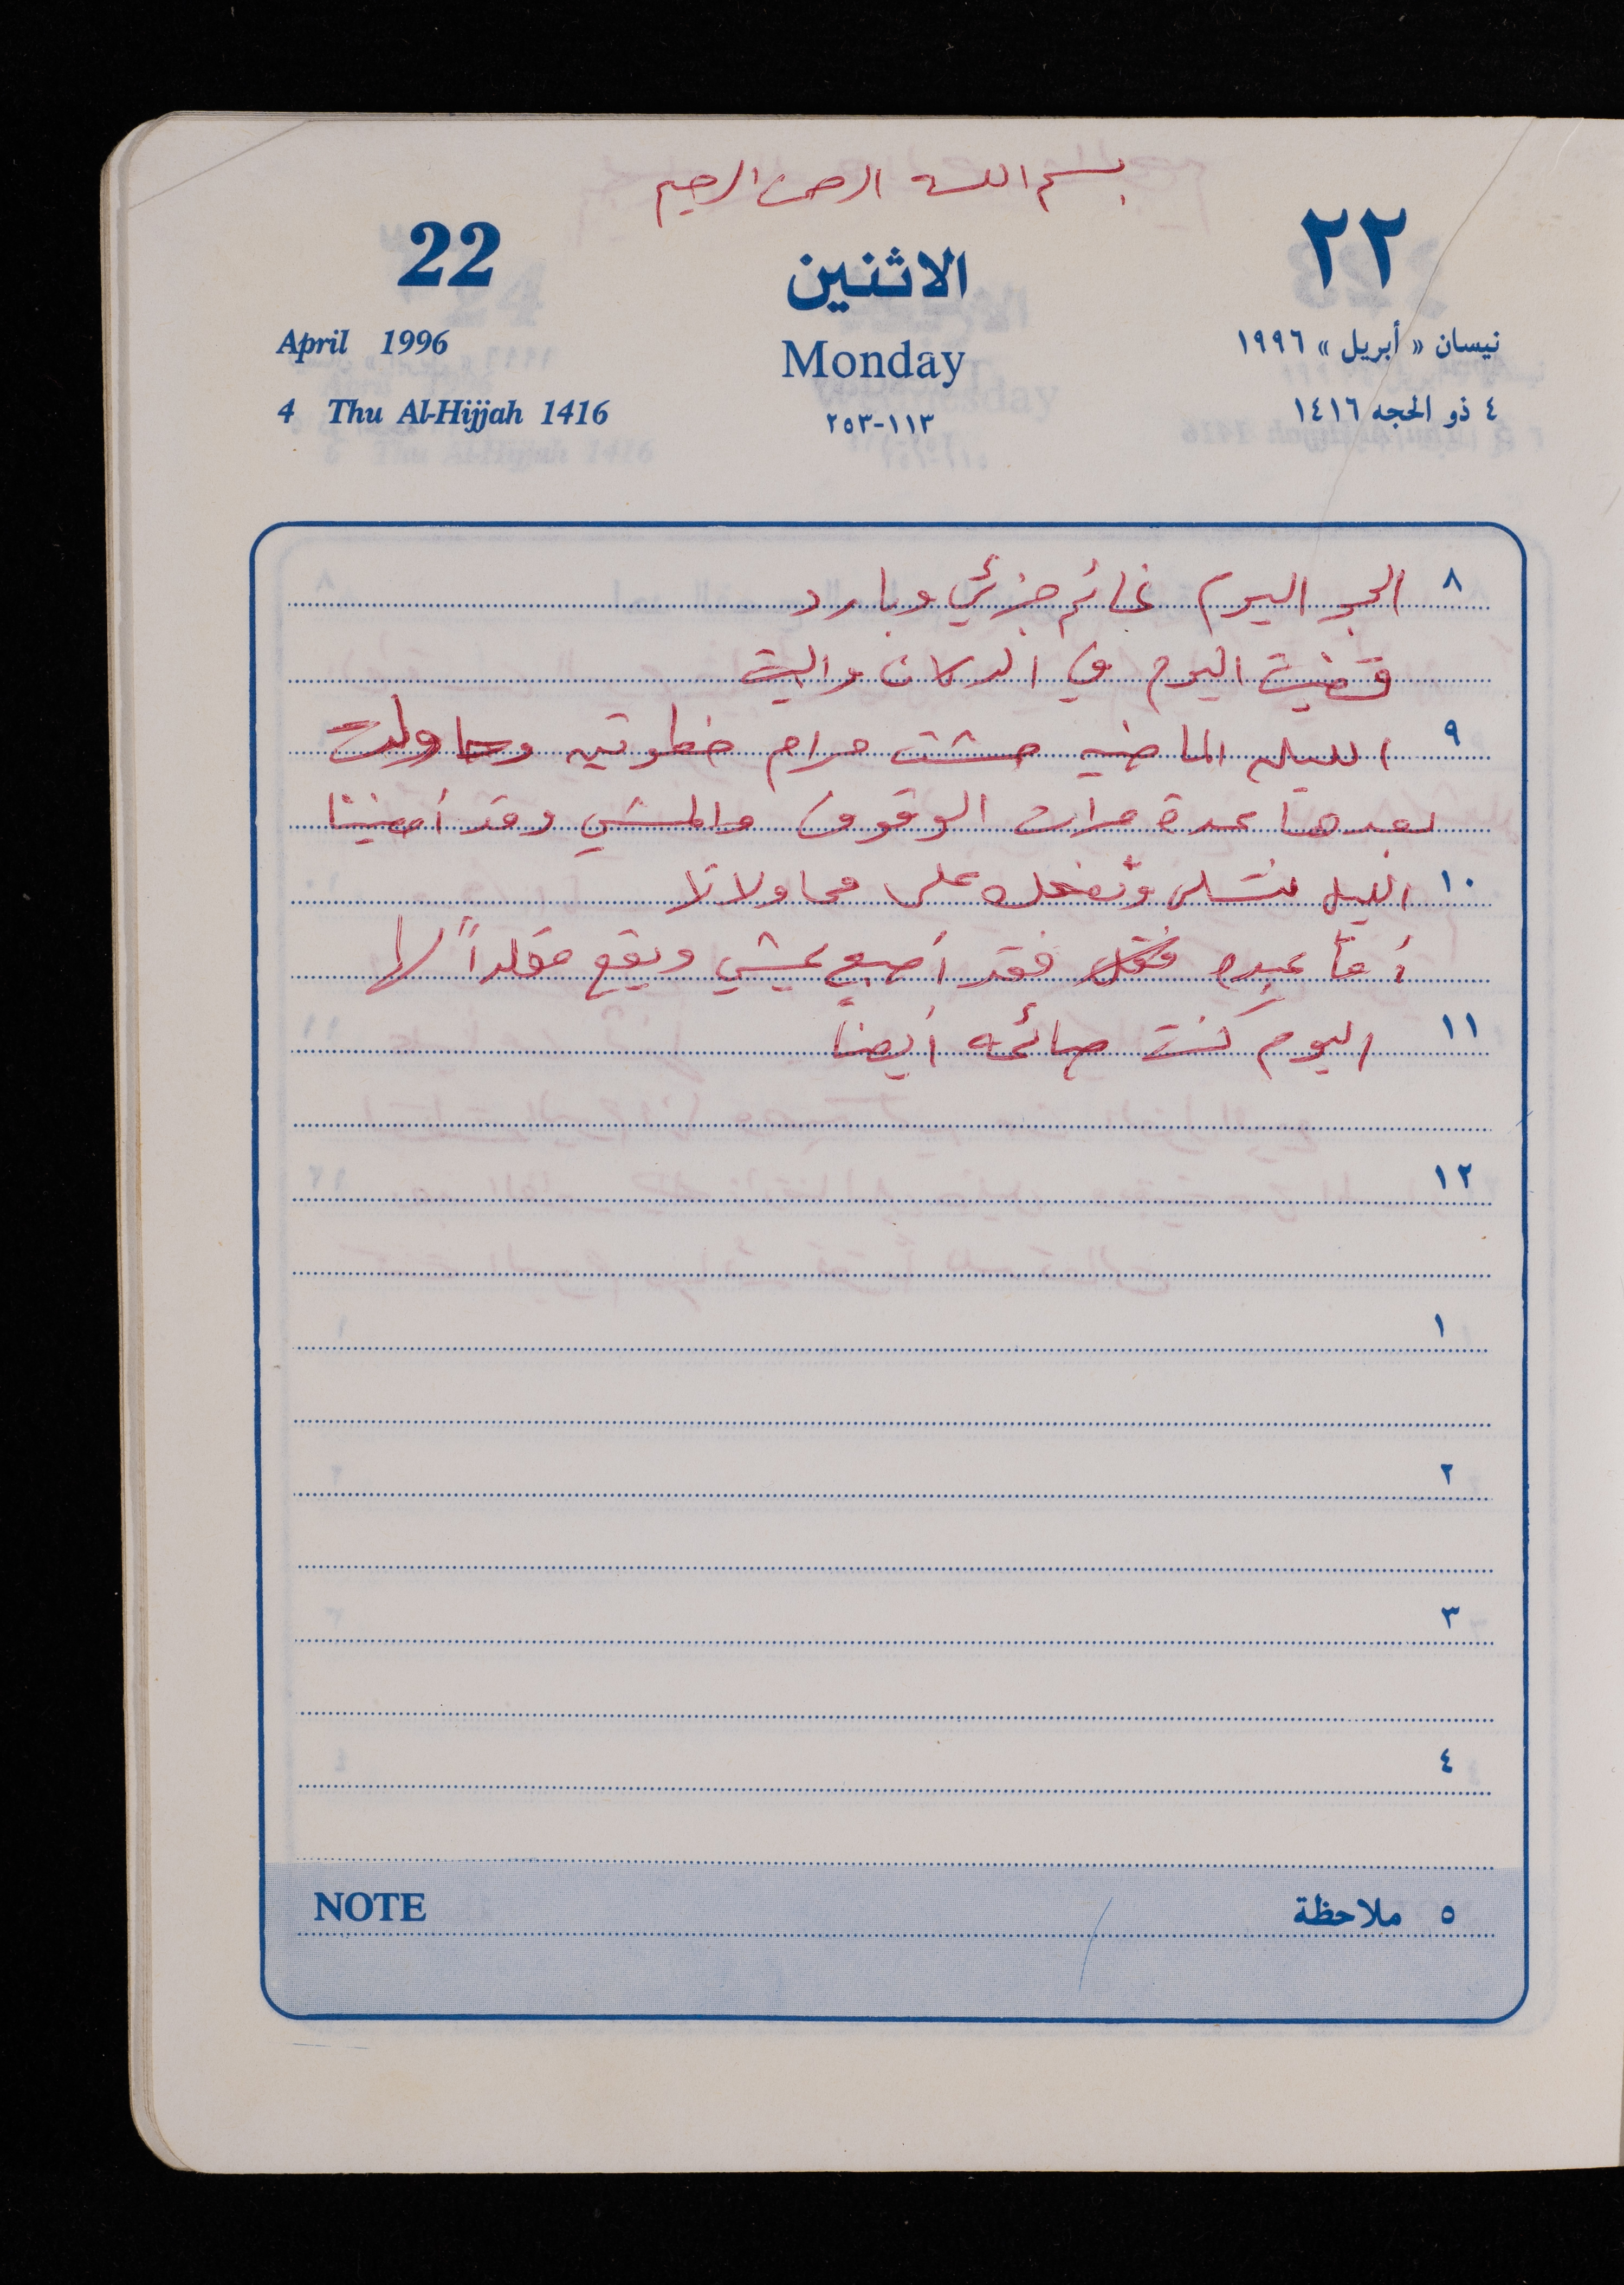 بسم الله الرحمن الرحيم
22 الاثنين ٢٢
April 1996 Monday نيسان « أبريل » ١٩٩٦
4 Thu Al-Hijjah 1416 ١١٣-٢٥٣ ٤ ذو الحجه ١٤١٦
٨ الجو اليوم غائم جزئي وبارد
قضيت اليوم في الدكان والبيت
٩ الليله الماضيه مشت مرام خطوتين وحاولت
بعدها عدة مرات الوقوف والمشي وقد أمضينا
١٠ الليل نتسلى ونضحك على محاولاتها
أما عبده فقد أصبح يمشي ويقع مقلداً لها
١١ اليوم كنت صائمه أيضاً
١٢
١
٢
٣
٤
NOTE ٥ ملاحظة